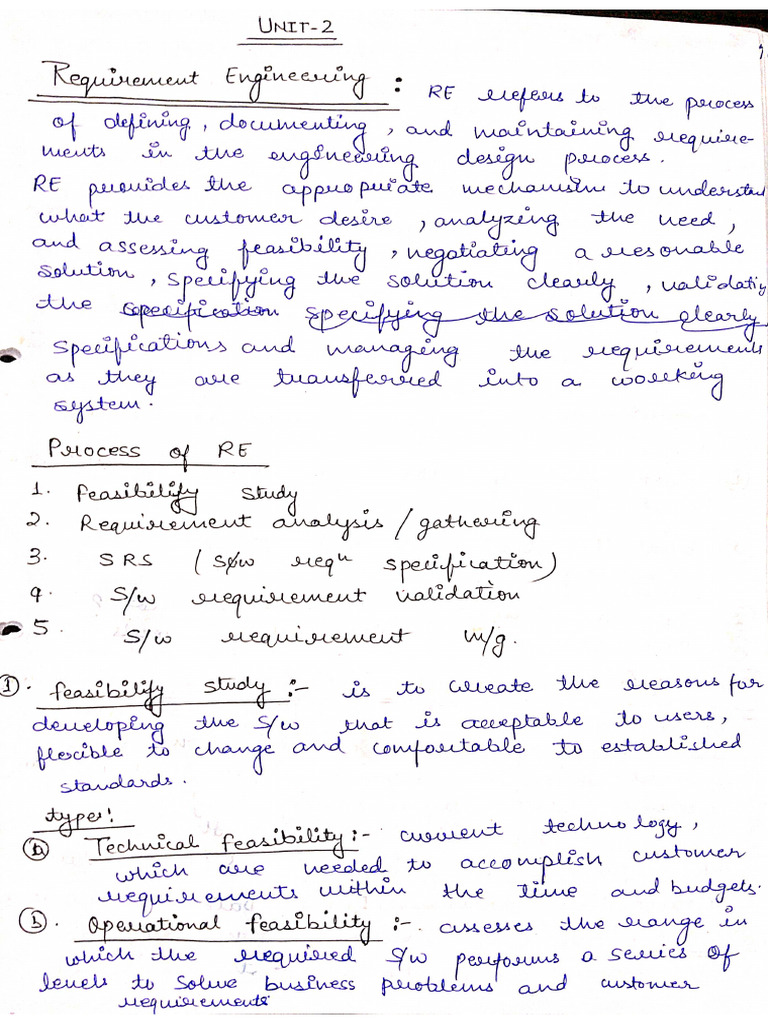 UNIT-2
Requirement Engineering : RE refers to the process
of defining, documenting, and maintaining require-
ments in the engineering design process.
RE provides the appropriate mechanism to understand
what the customer desire, analyzing the need,
and assessing feasibility, negotiating a resonable
solution, specifying the solution clearly, validating
the specification specifying the solution clearly
specifications and managing the requirements
as they are transferred into a working
system.
Process of RE
1. Feasibility study
2. Requirement analysis / gathering
3. SRS (S/w reqn specification)
4. S/w requirement validation
5. S/w requirement m/g.
1. feasibility study :- is to create the reasons for
developing the S/w that is acceptable to users,
flexible to change and comfortable to established
standards.
types:
Technical feasibility :- current technology,
which are needed to accomplish customer
requirements within the time and budgets.
Operational feasibility :- assesses the range in
which the required S/w performs a series of
levels to solve business problems and customer
requirements